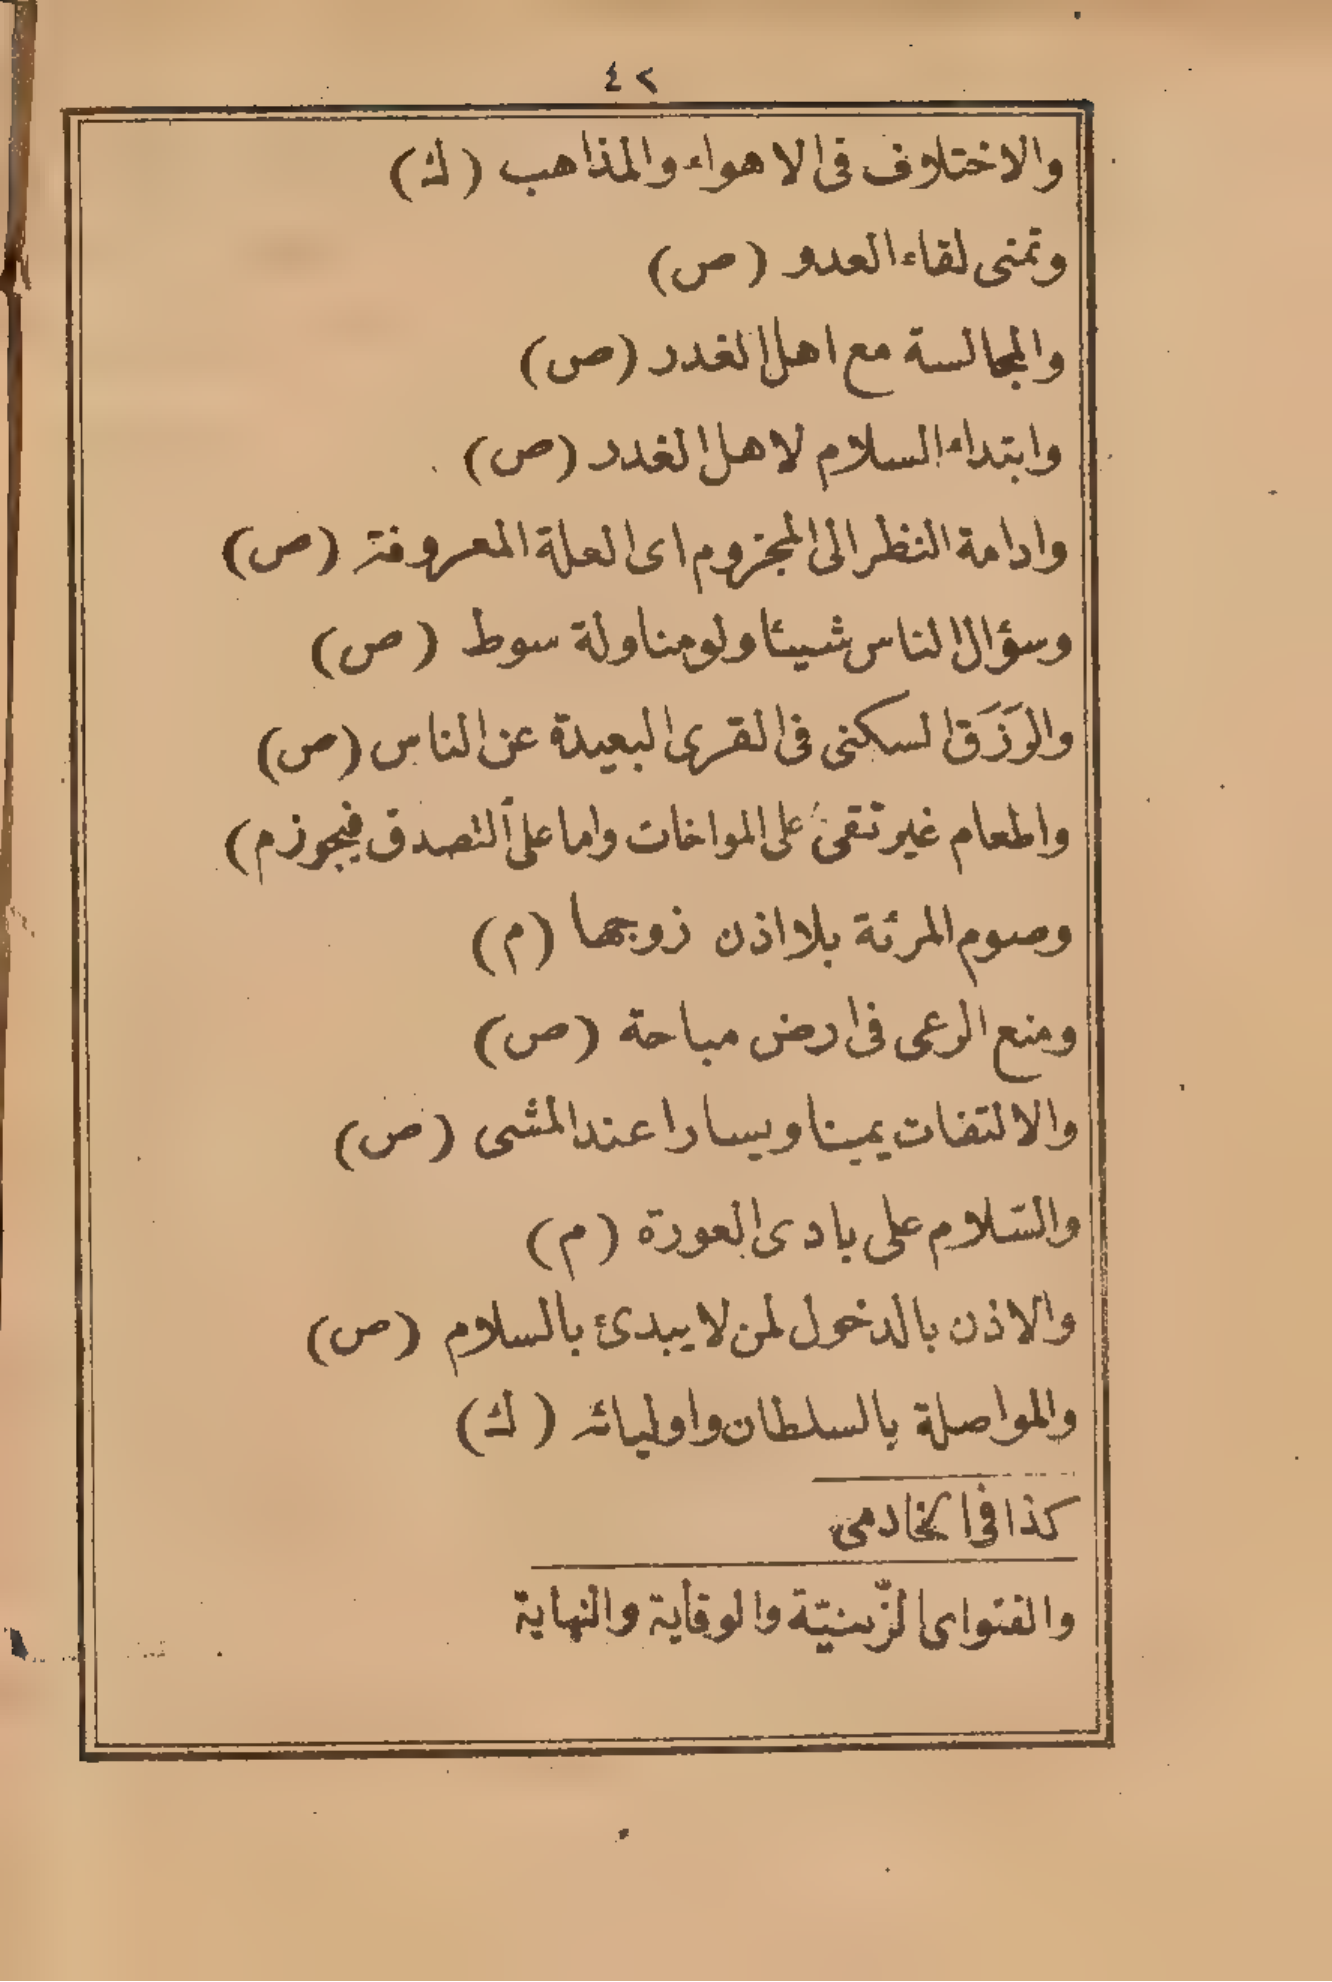 ٤٢
والاختلاف فى الاهواء والمذاهب (ك)
وتمنى لقاء العدو (ص)
والمجالسة مع اهل الغدر (ص)
وابتداء السلام لاهل الغدر (ص)
وادامة النظر الى المجزوم اى العلة المعروفة (ص)
وسؤال الناس شيئا ولو مناولة سوط (ص)
والرَزَق السكنى فى القرى البعيدة عن الناس (ص)
واطعام غير تقى على المواخات واما على التصدق فيجوز م)
وصوم المرئة بلا اذن زوجها (م)
ومنع الرعى فى ارض مباحة (ص)
والالتفات يمينا ويسارا عند المشى (ص)
والسّلام على بادى العورة (م)
والاذن بالدخول لمن لا يبدئ بالسلام (ص)
والمواصلة بالسلطان واوليائه (ك)
كذا فى الخادمى
والفتواى الزّينيّة والوقاية والنهاية